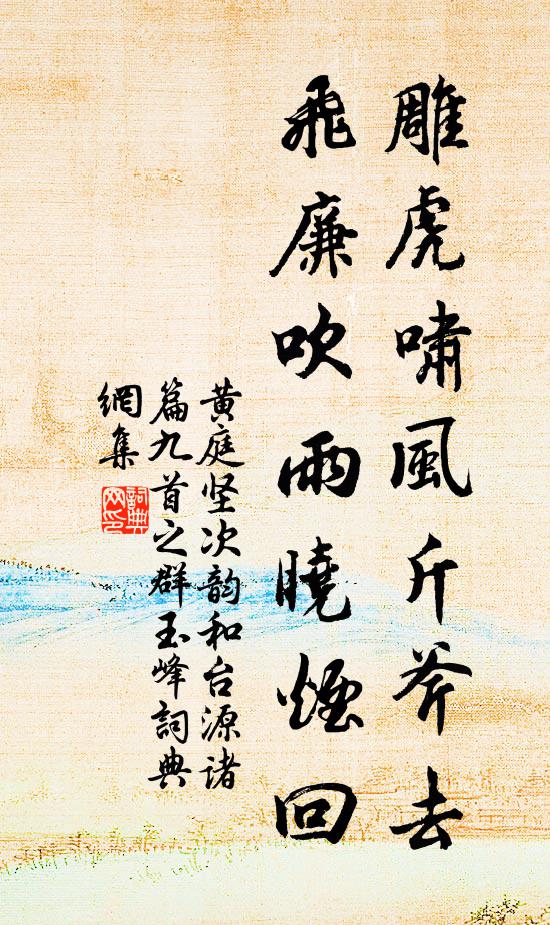 雕虎啸風斤斧去
飛廉吹雨曉煙回
黄庭坚次韵和台源诸
篇九首之群玉峰詞典
網集
詞典
网印